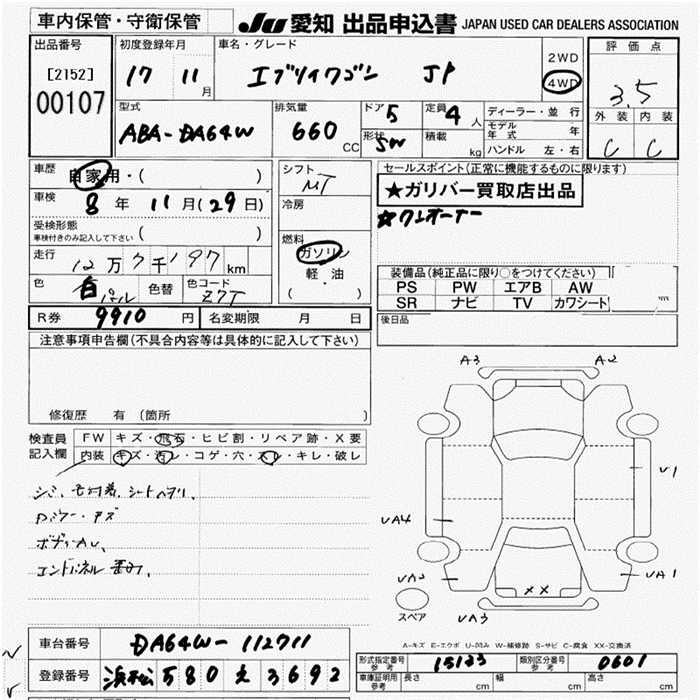 車内保管・守衛保管
JU 愛知 出品申込書 JAPAN USED CAR DEALERS ASSOCIATION
出品番号
[2152]
00107
初度登録年月
17 11月
車名・グレード
エブリイワゴン JP
2WD
4WD
評価点
3.5
外装 内装
C C
型式
ABA-DA64W
排気量
660 CC
ドア 5
形状 SW
定員 4人
積載 kg
ディーラー・並行
モデル年式 年
ハンドル 左・右
車歴 自家用・( )
車検 8年 11月(29日)
受検形態
車検付きのみ記入して下さい ( )
走行 12万7千197km
色 白パール 色替 色コード Z7T
シフト
MT
冷房
燃料
ガソリン
軽・油
( )
R券 9910円 名変期限 月 日
セールスポイント(正常に機能するものに限ります)
★ガリバー買取店出品
☆ワンオーナー
装備品(純正品に限り○をつけてください)
PS PW エアB AW
SR ナビ TV カワシート
後日品
注意事項申告欄(不具合内容等は具体的に記入して下さい)
修復歴 有(箇所
検査員記入欄
FW キズ・飛石・ヒビ割・リペア跡・X要
内装 キズ・汚レ・コゲ・穴・スレ・キレ・破レ
シミ、
Dミラー・キズ
エンドパネル
A3 A2
U1
UA4
UA1
UA3
スペア
XX
A-キズ E-エクボ U-凹み W-補修跡 S-サビ C-腐食 XX-交換済
車台番号 DA64W-112711
登録番号 浜松580え3692
形式指定番号 参考 15123 類別区分番号 参考 0601
車庫証明用 参考 長さ cm 幅 cm 高さ cm